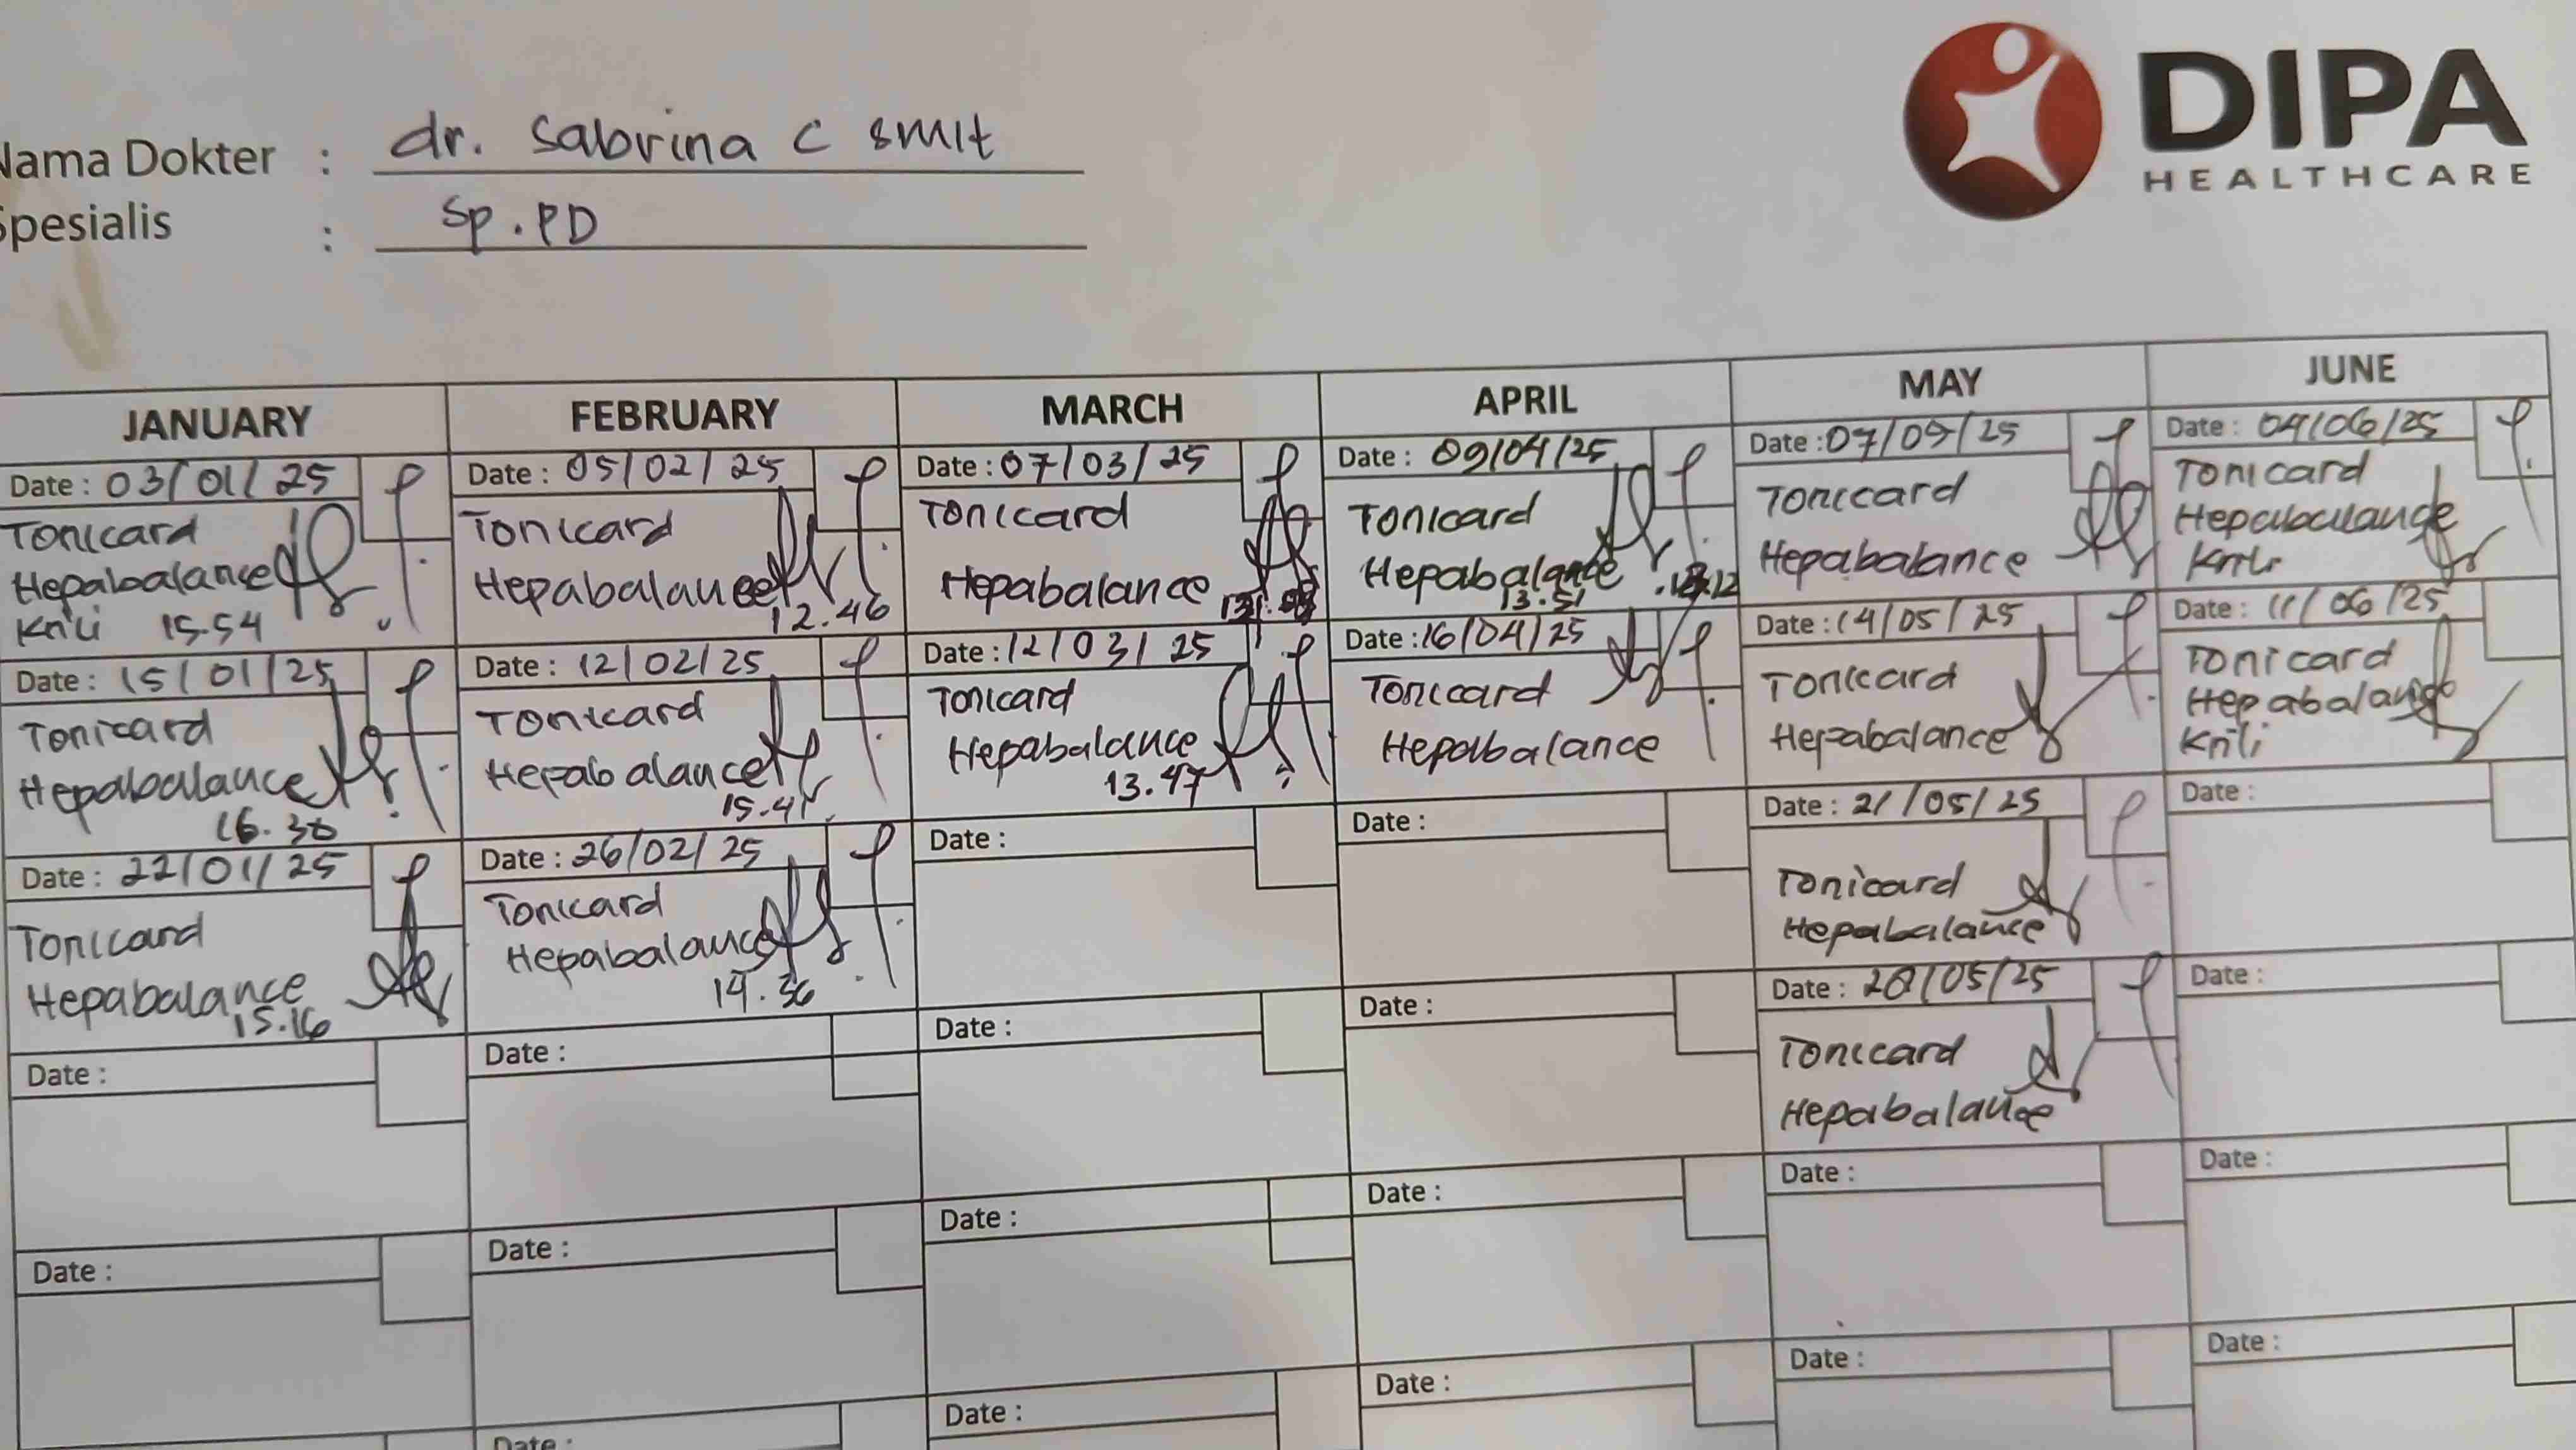 DIPA
HEALTHCARE
Nama Dokter : dr. Sabrina C Smit
Spesialis : Sp.PD
JANUARY
Date : 03/01/25
Tonicard
Hepabalance
Krili 15.54
Date : 15/01/25
Tonicard
Hepabalance
16.30
Date : 22/01/25
Tonicard
Hepabalance
15.16
Date :
Date :
FEBRUARY
Date : 05/02/25
Tonicard
Hepabalance
12.46
Date : 12/02/25
Tonicard
Hepabalance
15.41
Date : 26/02/25
Tonicard
Hepabalance
14.36
Date :
Date :
Date :
MARCH
Date : 07/03/25
Tonicard
Hepabalance
Date : 12/03/25
Tonicard
Hepabalance
13.47
Date :
Date :
Date :
Date :
APRIL
Date : 09/04/25
Tonicard
Hepabalance
13.51
Date : 16/04/25
Tonicard
Hepabalance
Date :
Date :
Date :
Date :
MAY
Date : 07/05/25
Tonicard
Hepabalance
Date : 14/05/25
Tonicard
Hepabalance
Date : 21/05/25
Tonicard
Hepabalance
Date : 28/05/25
Tonicard
Hepabalance
Date :
Date :
JUNE
Date : 04/06/25
Tonicard
Hepabalance
Krili
Date : 11/06/25
Tonicard
Hepabalance
Krili
Date :
Date :
Date :
Date :